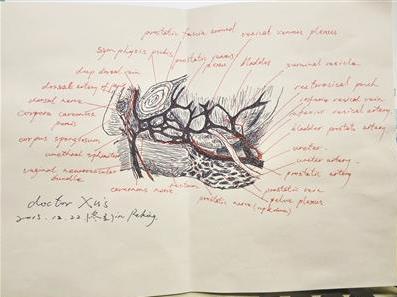 prostatic fascia
vesical venous plexus
symphysis pubis
prostatic venous
plexus
bladder
seminal vesicle
deep dorsal vein
rectovesical pouch
dorsal artery of penis
inferior vesical vein
dorsal nerve
inferior vesical artery
corpora cavernosa
penis
bladder prostate artery
corpus spongiosum
ureter
urethral sphincter
ureter artery
prostatic artery
neurovascular
bundle
cavernous nerve
rectum
prostatic vein
pelvic plexus
prostatic nerve
doctor Xu's
2015.12.22 (冬至) in Peking